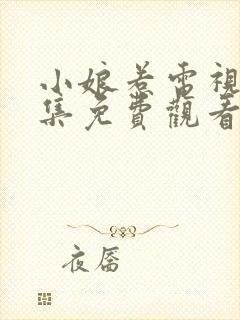 小娘惹雷視
集免費觀看
夜唇